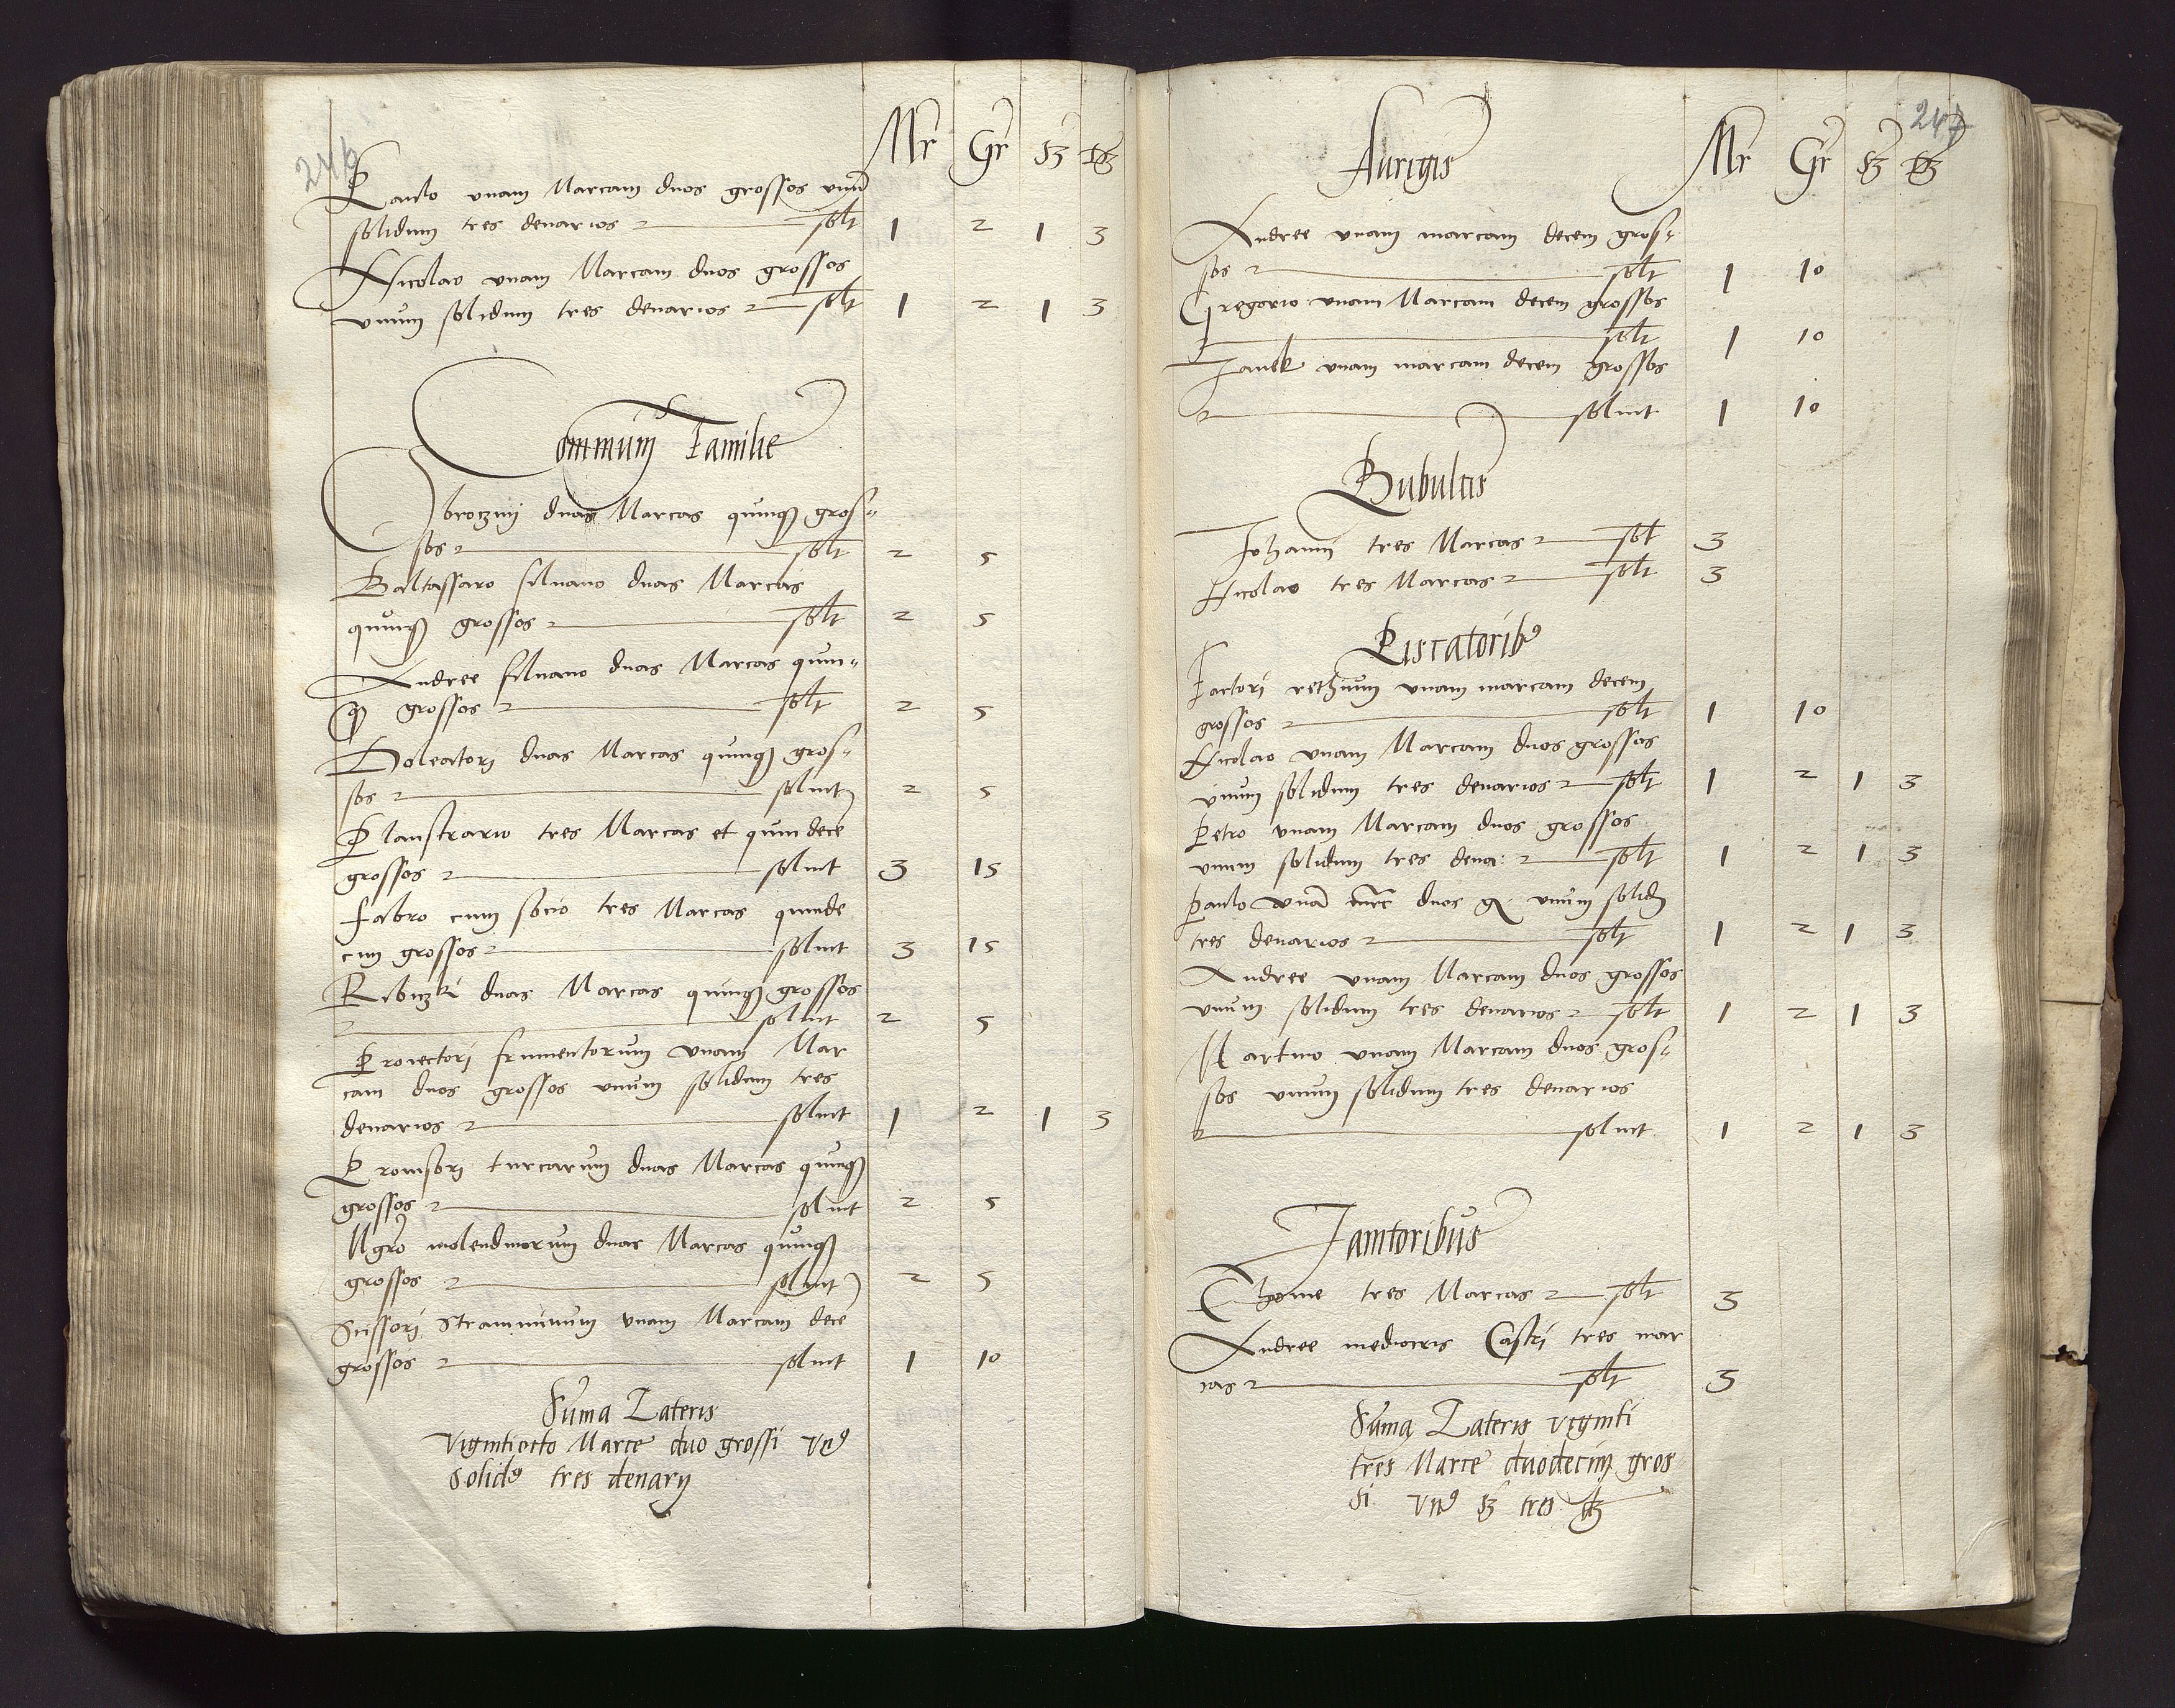 246
Mr Gr ß ₰
Paulo unam Marcam duos grossos unū
solidum tres denarios solt 1 2 1 3
Nicolao unam Marcam duos grossos
unum solidum tres denarios solt 1 2 1 3
Communis Familie
Obroczny duas Marcas quinq3 gros-
sos solt 2 5
Baltassaro siluano duas Marcas
quinq3 grossos solt 2 5
Andree siluano duas Marcas quin-
q3 grossos solt 2 5
Doleatori duas Marcas quinq3 gros-
sos soluit 2 5
Plaustrario tres Marcas et quindecē
grossos soluit 3 15
Fabro cum socio tres Marcas quinde
cim grossos soluit 3 15
Ribiczki duas Marcas quinq3 grossos
soluit 2 5
Proiectori frumentorum unam Mar
cam duos grossos unum solidum tres
denarios soluit 1 2 1 3
Prouisori turcarum duas Marcas quinq3
grossos soluit 2 5
Mgro molendinorum duas Marcas quinq3
grossos soluit 2 5
Scissori Straminum unam Marcam decē
grossos soluit 1 10
Suma Lateris
Vigintiocto Marce duo grossi vn9
Solid9 tres denarij
247
Aurigis Mr Gr ß ₰
Andree unam marcam decem gros-
sos solt 1 10
Gregorio unam Marcam decem grossos
solt 1 10
Janek unam marcam decem grossos
soluit 1 10
Bubulcis
Johanni tres Marcas sol 3
Nicolao tres Marcas solt 3
Piscatorib9
Factori rethium unam marcam decem
grossos solt 1 10
Nicolao unam Marcam duos grossos
unum solidum tres denarios solt 1 2 1 3
Petro unam Marcam duos grossos
unum solidum tres dena: solt 1 2 1 3
Paulo unā mrc duos g. unum solid
tres denarios solt 1 2 1 3
Andree unam Marcam duos grossos
unum solidum tres denarios solt 1 2 1 3
Martino unam Marcam duos gros-
sos unum solidum tres denarios
soluit 1 2 1 3
Janitoribus
Thome tres Marcas solt 3
Andree mediocris Castri tres mar
cas solt 3
Suma Lateris viginti
tres Marce duodecim gros
si vn9 ß tres ₰